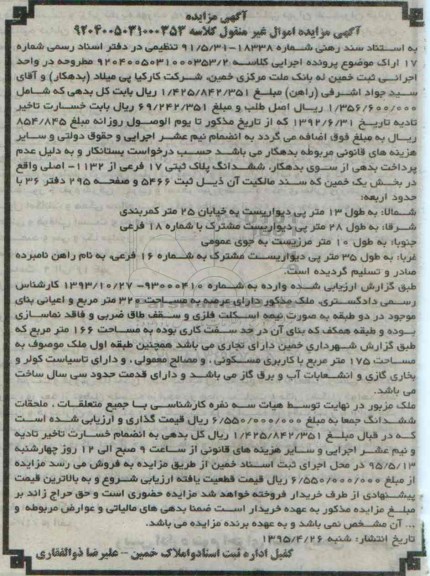 آگهی مزایده
آگهی مزایده اموال غیر منقول کلاسه ۹۲۰۴۰۰۵۰۳۱۰۰۰۳۵۳
به استناد سند رهنی شماره ۱۸۳۳۸-۹۱/۵/۳۱ تنظیمی در دفتر اسناد رسمی شماره
۱۷ اراک موضوع پرونده اجرایی کلاسه ۹۲۰۴۰۰۵۰۳۱۰۰۰۳۵۳/۲ مطروحه در واحد
اجرائی ثبت خمین له بانک ملت مرکزی خمین، شرکت کارکیا پی میلاد (بدهکار) و آقای
سید جواد اشرفی (راهن) مبلغ ۱/۴۲۵/۸۴۲/۳۵۱ ریال بابت کل بدهی که شامل
۱/۳۵۶/۶۰۰/۰۰۰ ریال اصل طلب و مبلغ ۶۹/۲۴۲/۳۵۱ ریال بابت خسارت تاخیر
تادیه تاریخ ۱۳۹۲/۶/۳۱ که از تاریخ مذکور تا یوم الوصول روزانه مبلغ ۸۵۴/۸۴۵
ریال به مبلغ فوق اضافه می گردد به انضمام نیم عشر اجرایی و حقوق دولتی و سایر
هزینه های قانونی مربوطه بدهکار می باشد حسب درخواست بستانکار و به دلیل عدم
پرداخت بدهی از سوی بدهکار، ششدانگ پلاک ثبتی ۱۷ فرعی از ۱۱۳۲- اصلی واقع
در بخش یک خمین که سند مالکیت آن ذیل ثبت ۵۴۶۶ و صفحه ۲۹۵ دفتر ۳۶ با
حدود اربعه:
شمالا: به طول ۱۳ متر پی دیواریست به خیابان ۲۵ متر کمربندی
شرقا: به طول ۲۸ متر پی دیواریست مشترک با شماره ۱۸ فرعی
جنوبا: به طول ۱۰ متر مرزیست به جوی عمومی
غربا: به طول ۳۵ متر پی دیواریست مشترک به شماره ۱۶ فرعی، به نام راهن نامبرده
صادر و تسلیم گردیده است.
طبق گزارش ارزیابی شده وارده به شماره ۹۳۰۰۰۴۱۰-۱۳۹۳/۱۰/۲۷ کارشناس
رسمی دادگستری. ملک مذکور دارای عرصه به مساحت ۳۲۰ متر مربع و اعیانی بنای
موجود در دو طبقه به صورت نیمه اسکلت فلزی و سقف طاق ضربی و فاقد نماسازی
بوده و طبقه همکف که بنای آن در حد سفت کاری بوده به مساحت ۱۶۶ متر مربع که
طبق گزارش شهرداری خمین دارای تجاری می باشد همچنین طبقه اول ملک موصوف به
مساحت ۱۷۵ متر مربع با کاربری مسکونی . و مصالح معمولی . و دارای تاسیاست کولر و
بخاری گازی و انشعابات آب و برق گاز می باشد و دارای قدمت حدود سی سال ساخت
می باشد.
ملک مزبور در نهایت توسط هیات سه نفره کارشناسی بـا جمیع متعلقات . ملحقات
ششدانگ جمعا به مبلغ ۶/۵۵۰/۰۰۰/۰۰۰ ریال قیمت گذاری و ارزیابی شده است
که در قبال مبلغ ۱/۴۲۵/۸۴۲/۳۵۱ ریال کل بدهی به انضمام خسارت تاخیر تادیه
و نیم عشر اجرایی و سایر هزینه های قانونی از ساعت ۹ صبح الی ۱۲ روز چهارشنبه
۹۵/۵/۱۳ در محل اجرای ثبت اسناد خمین از طریق مزایده به فروش می رسد مزایده
از مبلغ ۶/۵۵۰/۰۰۰/۰۰۰ ریال قیمت قطعیت یافته ارزیابی شروع و به بالاترین قیمت
پیشنهادی از طرف خریدار فروخته خواهد شد مزایده حضوری است و حق حراج زائد بر
مبلغ مزایده مذکور به عهده خریدار است ضمنا بدهی های مالیاتی و عوارض مربوطه و
... آن مشخص نمی باشد و به عهده برنده مزایده می باشد.
تاریخ انتشار: شنبه ۱۳۹۵/۴/۲۶
کفیل اداره ثبت اسنادواملاک خمین -- علیرضا ذوالفقاری